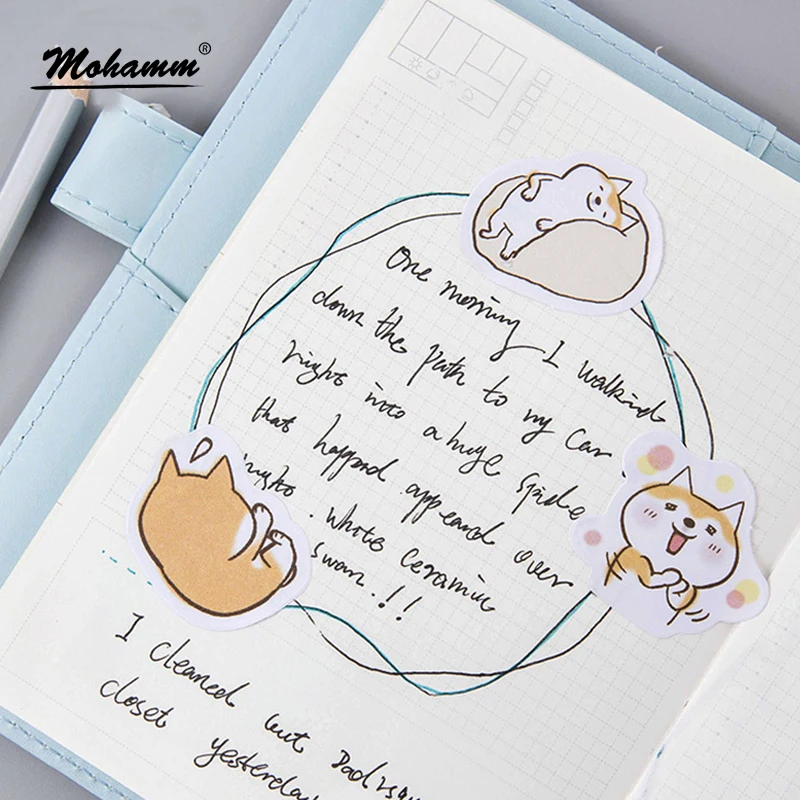 Mohamm®
One morning I walkind
down the path to my car
right into a huge spide
that happed appeard over
night. White Ceramin
Swan.!!
I cleaned out
closet yesterday